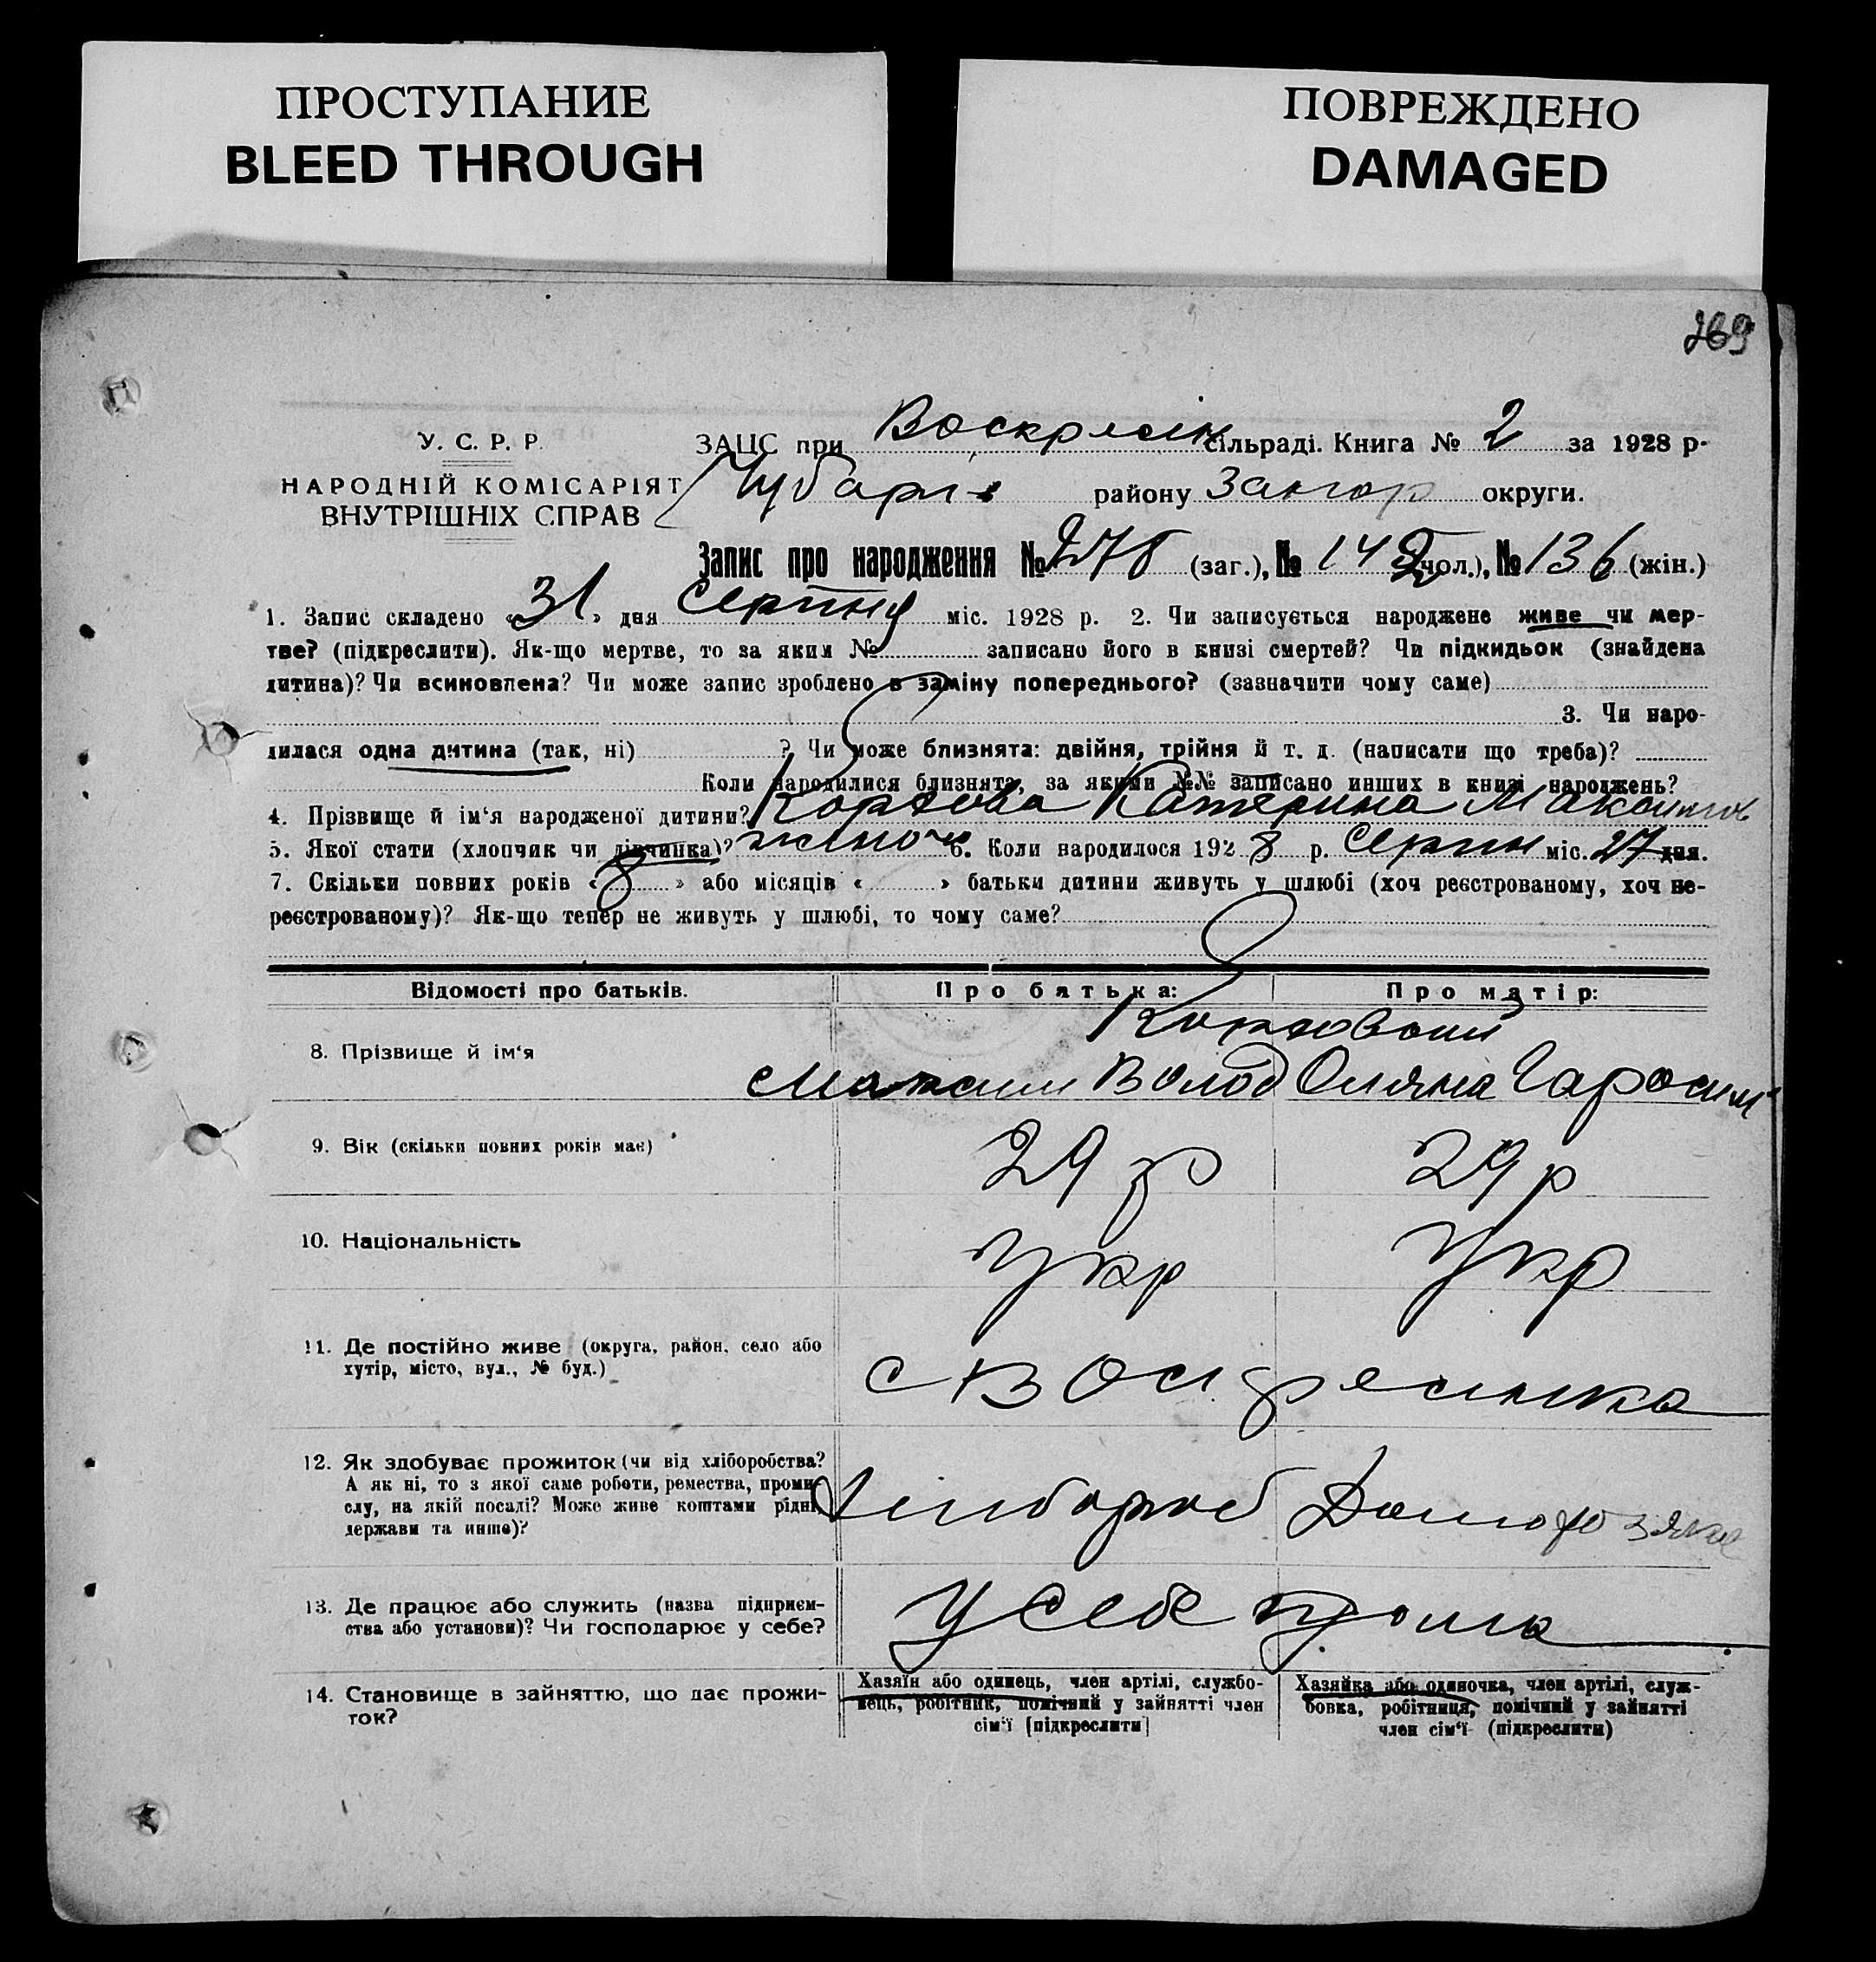 ПРОСТУПАНИЕ
BLEED THROUGH
ПОВРЕЖДЕНО
DAMAGED
269
У. С. Р. Р.
НАРОДНІЙ КОМІСАРІЯТ
ВНУТРІШНІХ СПРАВ
ЗАЦС при Воскресін сільраді. Книга № 2 за 1928 р.
Чубарів району Запор округи.
Запис про народження № 278 (заг.), № 142 (чол.), № 136 (жін.)
1. Запис складено «31» дня Серпня міс. 1928 р. 2. Чи записується народжене живе чи мер-
тве? (підкреслити). Як-що мертве, то за яким № записано його в книзі смертей? Чи підкидьок (знайдена
дитина)? Чи всиновлена? Чи може запис зроблено в заміну попереднього? (зазначити чому саме)
3. Чи наро-
дилася одна дитина (так, ні) ? Чи може близнята: двійня, трійня й т. д. (написати що треба)?
Коли народилися близнята, за якими №№ записано инших в книзі народжень?
4. Прізвище й ім'я народженої дитини? Катерина
5. Якої стати (хлопчик чи дівчинка)? жіноч 6. Коли народилося 1928 р. Серпн міс. 27 дня.
7. Скільки повних років «8» або місяців « » батьки дитини живуть у шлюбі (хоч реєстрованому, хоч не-
реєстрованому)? Як-що тепер не живуть у шлюбі, то чому саме?
Відомості про батьків. Про батька: Про матір:
8. Прізвище й ім'я
Максим Волод Оляна Гарасим
9. Вік (скільки повних років має) 29 р 29 р
10. Національність Укр Укр
11. Де постійно живе (округа, район, село або
хутір, місто, вул., № буд.)
с Воскресинка
12. Як здобуває прожиток (чи від хліборобства?
А як ні, то з якої саме роботи, ремества, проми-
слу, на якій посаді? Може живе коштами рідні,
держави та инше)?
Хлібороб
13. Де працює або служить (назва підприєм-
ства або установи)? Чи господарює у себе?
У себе дома
14. Становище в зайняттю, що дає прожи-
ток?
Хазяїн або одинець, член артілі, службо-
вець, робітник, помічний у зайнятті член
сім'ї [підкреслити]
Хазяйка або одиночка, член артілі, служ-
бовка, робітниця, помічний у зайнятті
член сім'ї (підкреслити)